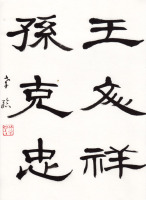 王文祥
孫克忠